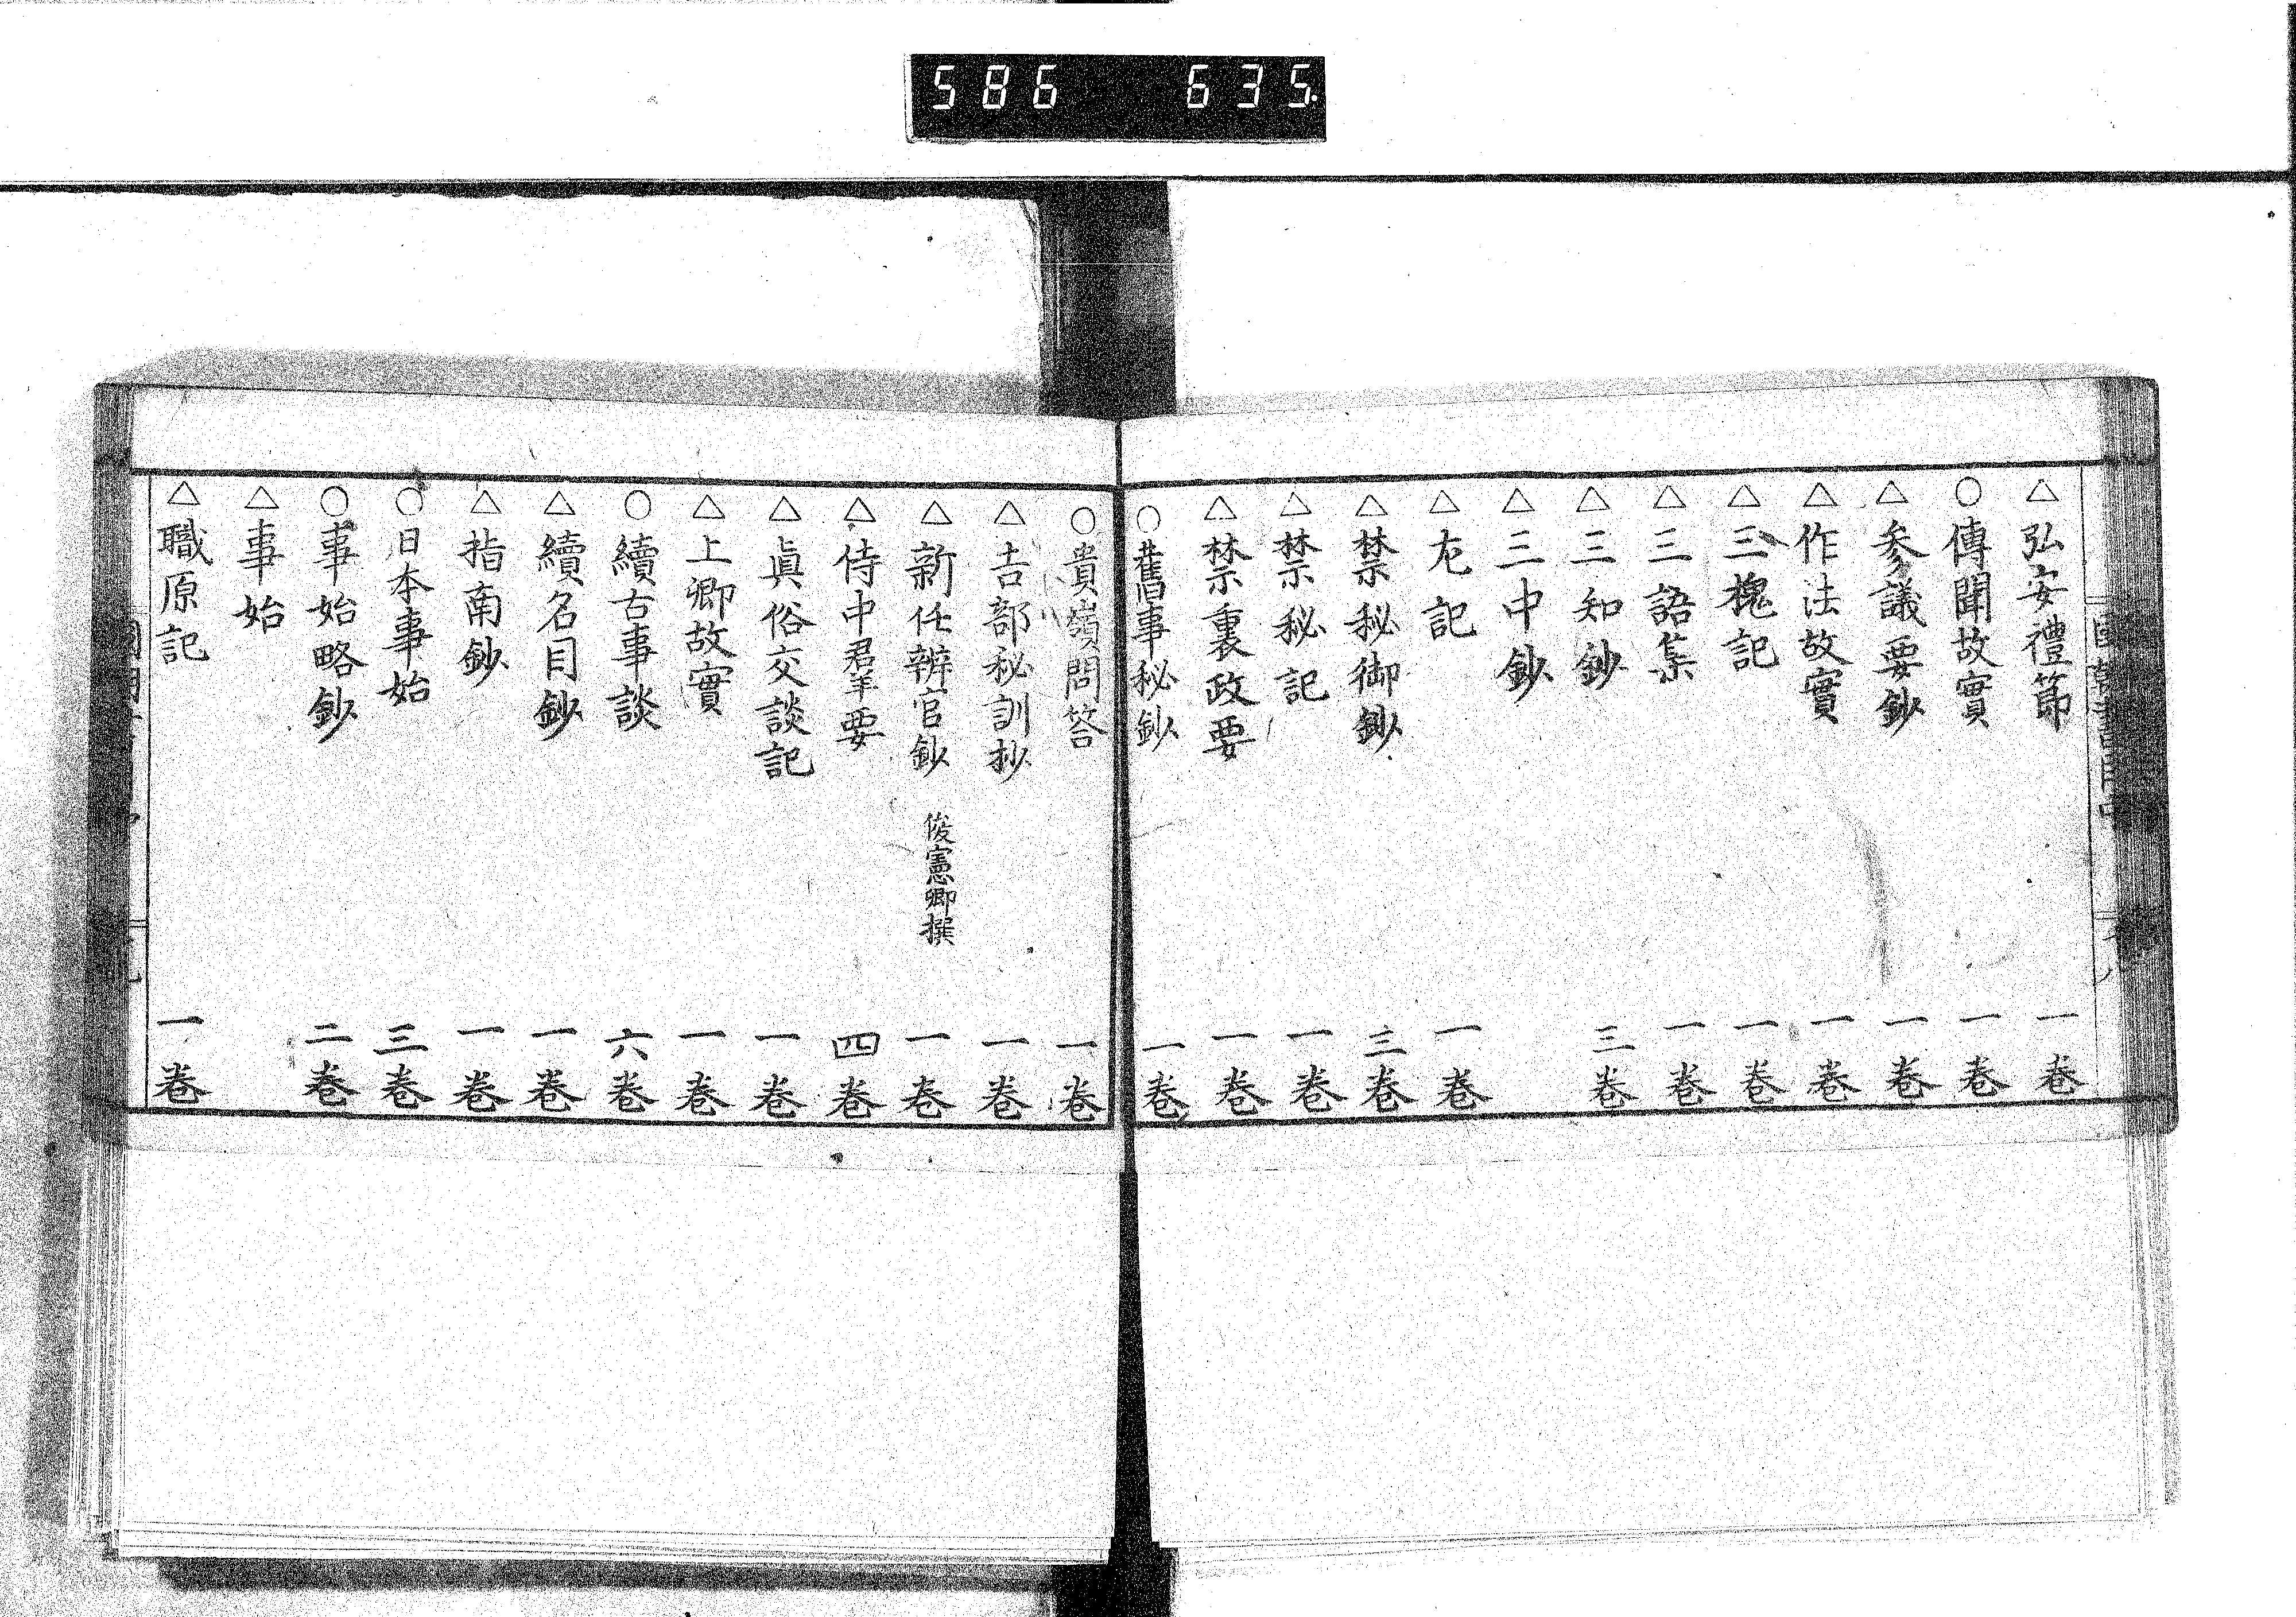 586 635.
△弘安禮節 一卷
○傳聞故實 一卷
△參議要鈔 一卷
△作法故實 一卷
△三槐記 一卷
△三語集 一卷
△三知鈔 三卷
△三中鈔
△尢記 一卷
△禁秘御鈔 三卷
△禁秘記 一卷
△禁重裏政要 一卷
○舊事秘鈔 一卷
○貴嶺問答 一卷
△吉部秘訓抄 一卷
△新任辨官鈔 俊憲卿撰 一卷
△侍中群要 四卷
△眞俗交談記 一卷
△上卿故實 一卷
○續古事談 六卷
△續名目鈔 一卷
△指南鈔 一卷
○日本事始 三卷
○事始略鈔 二卷
△事始
△職原記 一卷